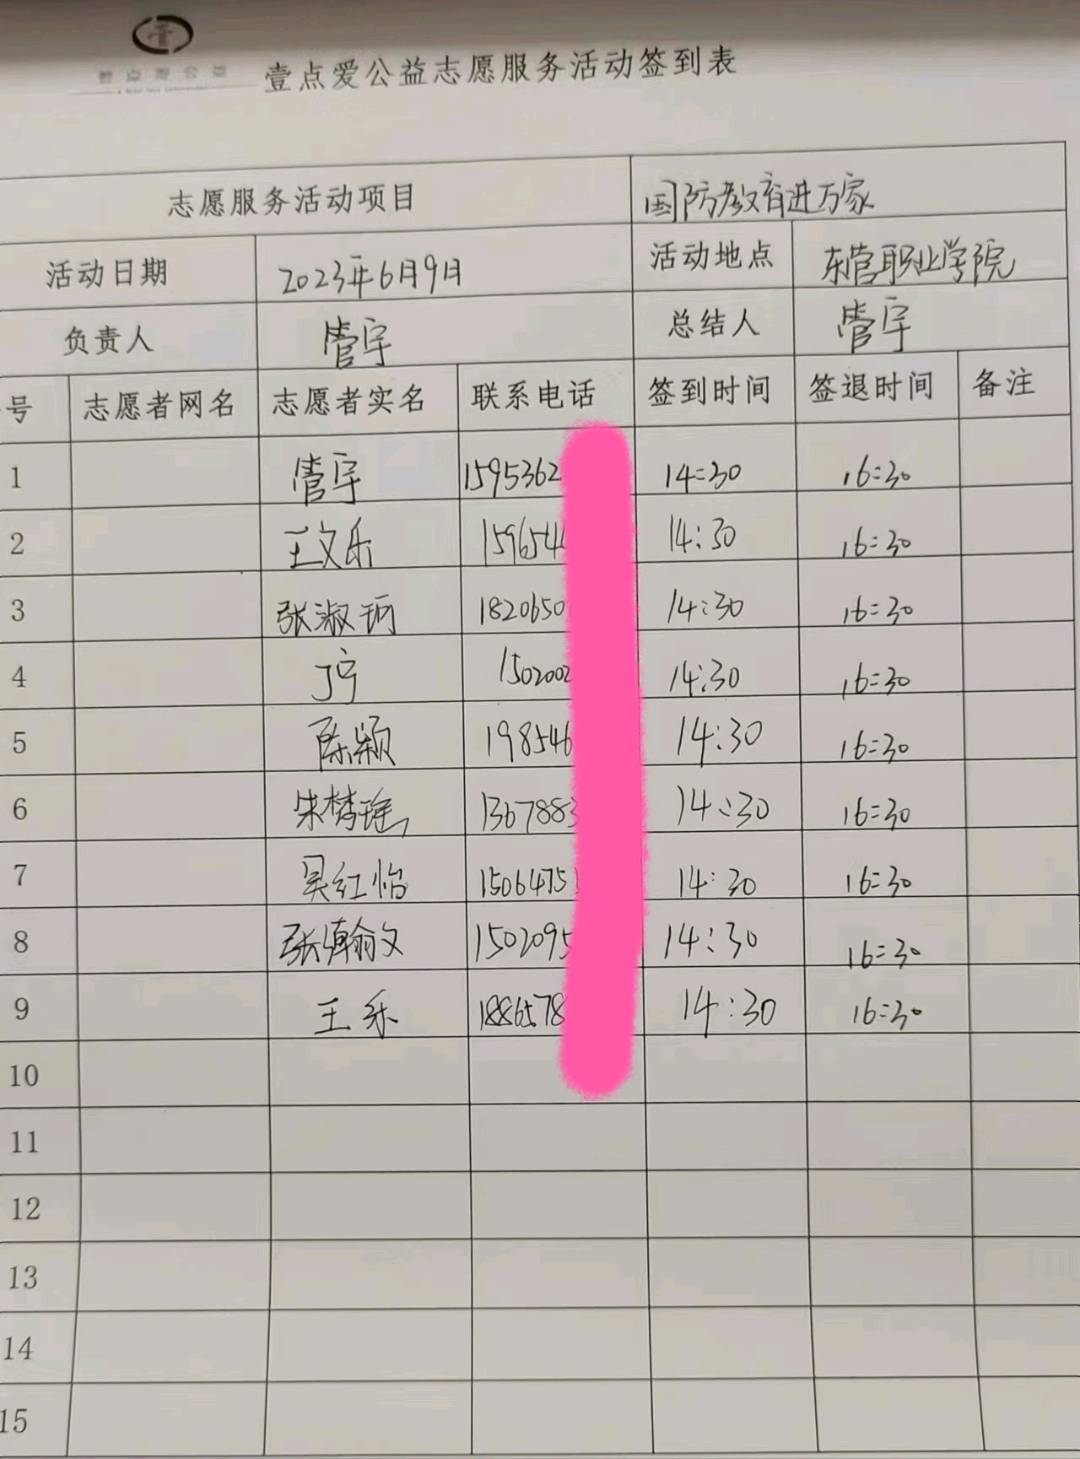 壹点爱公益
壹点爱公益志愿服务活动签到表
志愿服务活动项目 国防教育进万家
活动日期 2023年6月9日 活动地点 东营职业学院
负责人 管宇 总结人 管宇
号 志愿者网名 志愿者实名 联系电话 签到时间 签退时间 备注
1 管宇 1595362 14:30 16:30
2 王文乐 159654 14:30 16:30
3 张淑珂 1820650 14:30 16:30
4 丁宁 1502002 14:30 16:30
5 陈颖 198546 14:30 16:30
6 朱梦瑶 1367883 14:30 16:30
7 吴红怡 1506475 14:30 16:30
8 张瀚文 1502095 14:30 16:30
9 王乐 1886578 14:30 16:30
10
11
12
13
14
15